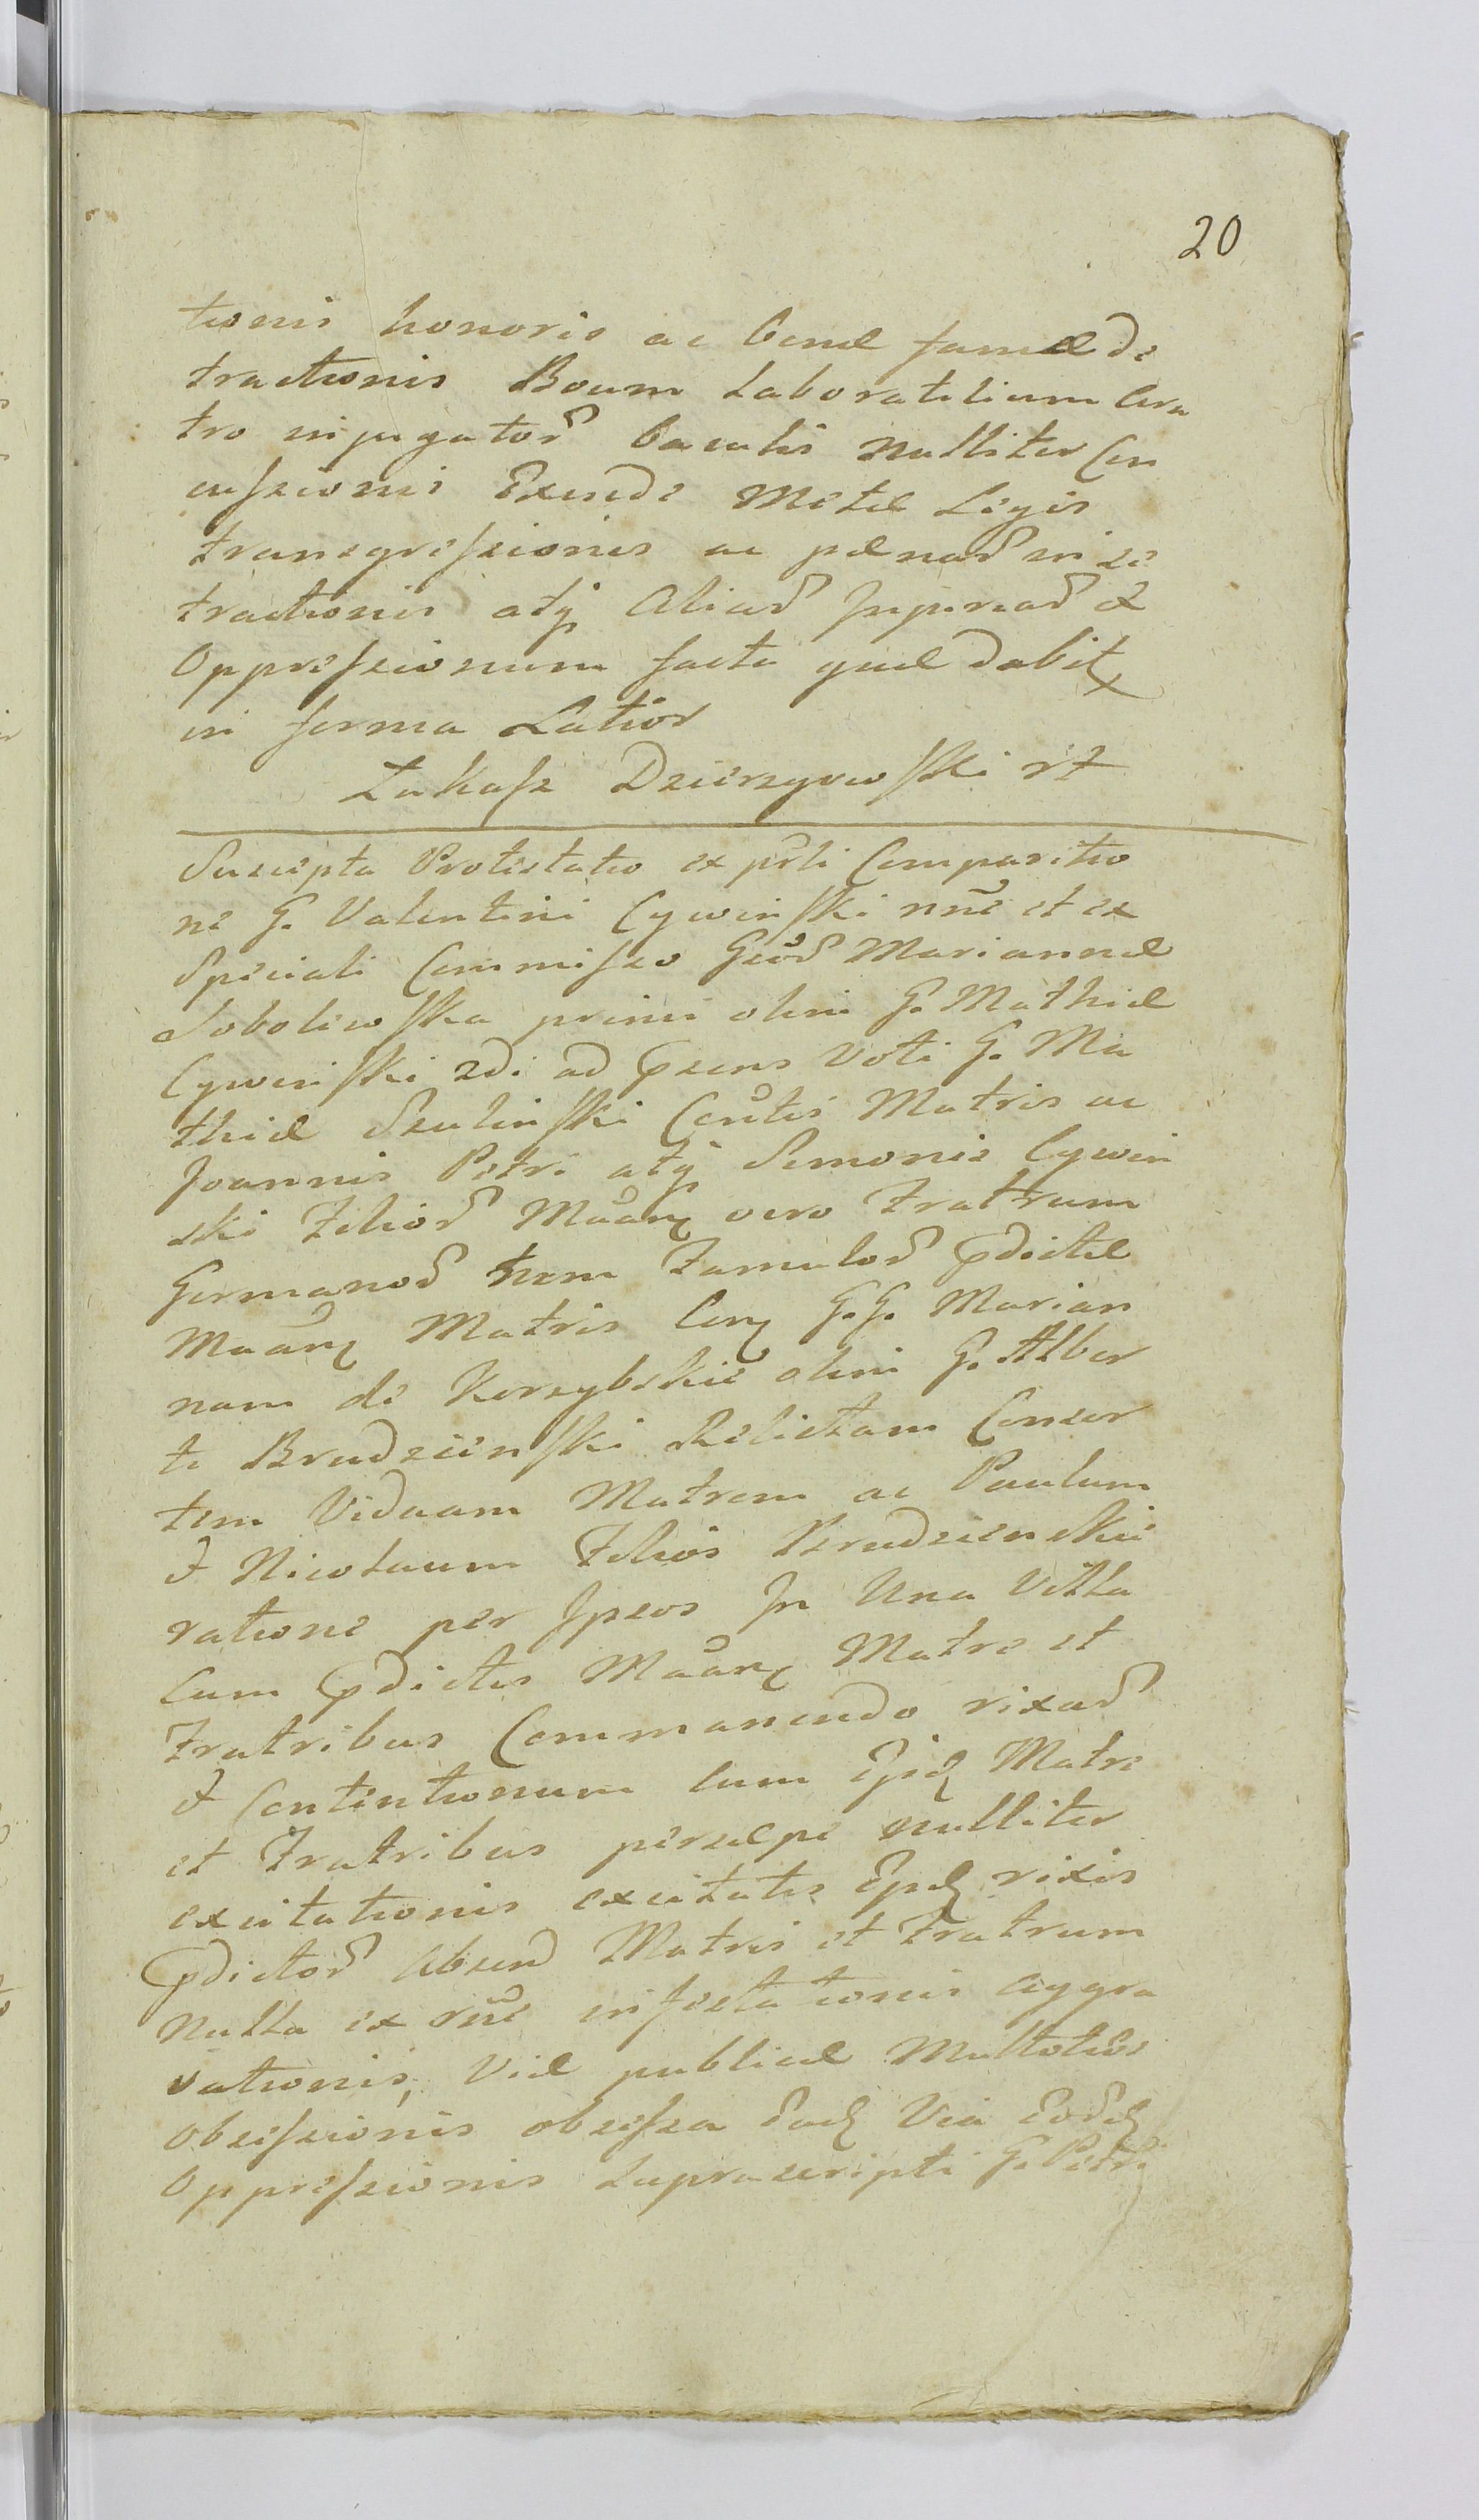 20
tionis honoris ac bonæ famæ de
tractionis Boum Laboratilium Ara
tro injugator baculis Nulliter Con
cussionis Exinde Metæ Legis
transgressionis ac pænar in se
tractionis atq Aliar Injuriar &
Oppressionum facta quæ dabit
in forma Latior
Lukasz Dzierzgowski
Suscepta Protestatio ex prli Comparitio
ne G. Valentini Cywinski nne et ex
Speciali Commisso Gsor Mariannæ
Sobolewska primi olim G. Mathiæ
Cywinski 2di ad psens Voti G. Ma
thiæ Szulinski Contis Matris ac
Joannis Petri atq Simonis Cywin
ski Filior Maarq vero Fratrum
Germanor nem Famulor pdictæ
Maarq Matris Conq G.G. Marian
nam de Korzybskie olim G. Alber
ti Brudzienski Relictam Consor
tem Viduam Matrem ac Paulum
& Nicolaum Filios Brudzienskie
ratione per Ipsos In Una Villa
Cum pdictis Maarq Matre et
Fratribus Commanendo rixar
& Contentionum Cum Ejsd Matre
et Fratribus persæpe nulliter
excitationis excitatis Ejsd rixis
pdictor Absend Matris et Fratrum
Nulla ex rne insectationis Aggra
vationis, Viæ publicæ Multoties
obsessionis obsessa Ead Via Eord
Oppressionis Suprascripti G. Petri